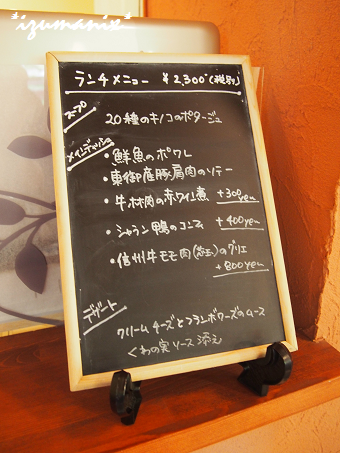 *izumanix*
ランチメニュー ¥2,300-(税別)
スープ
20種のキノコのポタージュ
メインディッシュ
・鮮魚のポワレ
・東御産豚肩肉のソテー
・牛ホホ肉の赤ワイン煮 +300yen
・シャラン鴨のコンフィ +400yen
・信州牛モモ肉のグリエ
+800yen
デザート
クリームチーズとフランボワーズのムース
くわの実ソース添え